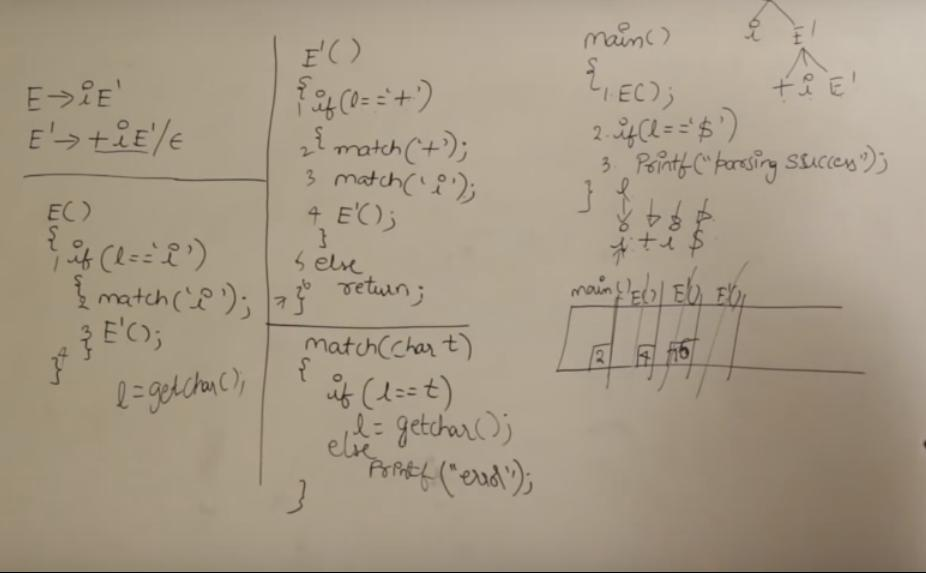 E→iE'
E'→+iE'/ϵ
E()
{
1 if(l=='i')
{
2 match('i');
3 E'();
}
4 }
l=getchar();
E'()
{
1 if(l=='+')
2 { match('+');
3 match('i');
4 E'();
}
5 else
6 return;
7 }
match(char t)
{
if(l==t)
l= getchar();
else
printf("error");
}
main()
{
1. E();
2. if(l=='$')
3. Printf("parsing Success");
}
l
i + i $
i E'
+ i E'
main() E() E'() E'()
2 4